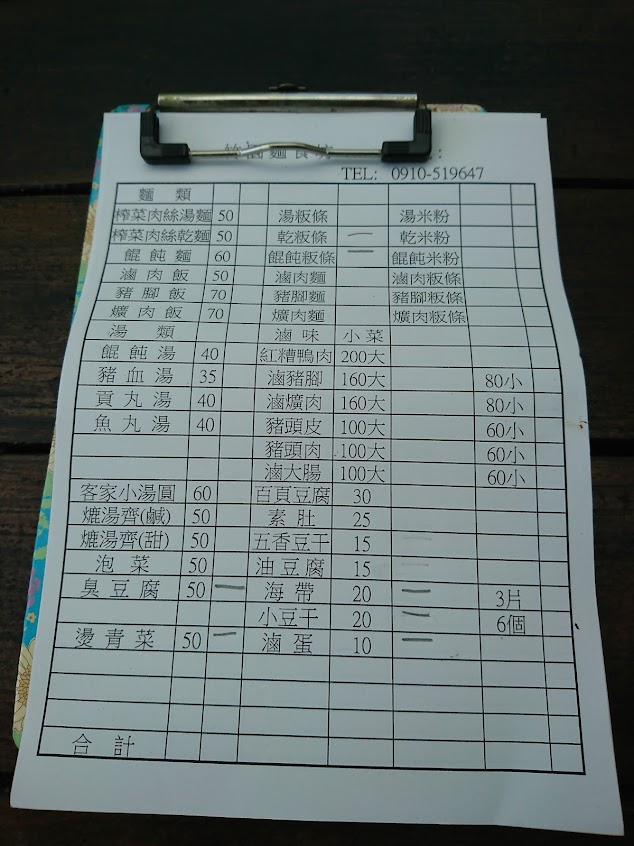 麵食坊 :
TEL: 0910-519647
麵 類
榨菜肉絲湯麵 50 湯粄條 湯米粉
榨菜肉絲乾麵 50 乾粄條 一 乾米粉
餛飩麵 60 餛飩粄條 餛飩米粉
滷肉飯 50 滷肉麵 滷肉粄條
豬腳飯 70 豬腳麵 豬腳粄條
爌肉飯 70 爌肉麵 爌肉粄條
湯 類 滷味 小菜
餛飩湯 40 紅糟鴨肉 200大
豬血湯 35 滷豬腳 160大 80小
貢丸湯 40 滷爌肉 160大 80小
魚丸湯 40 豬頭皮 100大 60小
豬頭肉 100大 60小
滷大腸 100大 60小
客家小湯圓 60 百頁豆腐 30
熝湯齊(鹹) 50 素肚 25
熝湯齊(甜) 50 五香豆干 15
泡菜 50 油豆腐 15
臭豆腐 50 一 海帶 20 一 3片
小豆干 20 一 6個
燙青菜 50 一 滷蛋 10 一
合 計